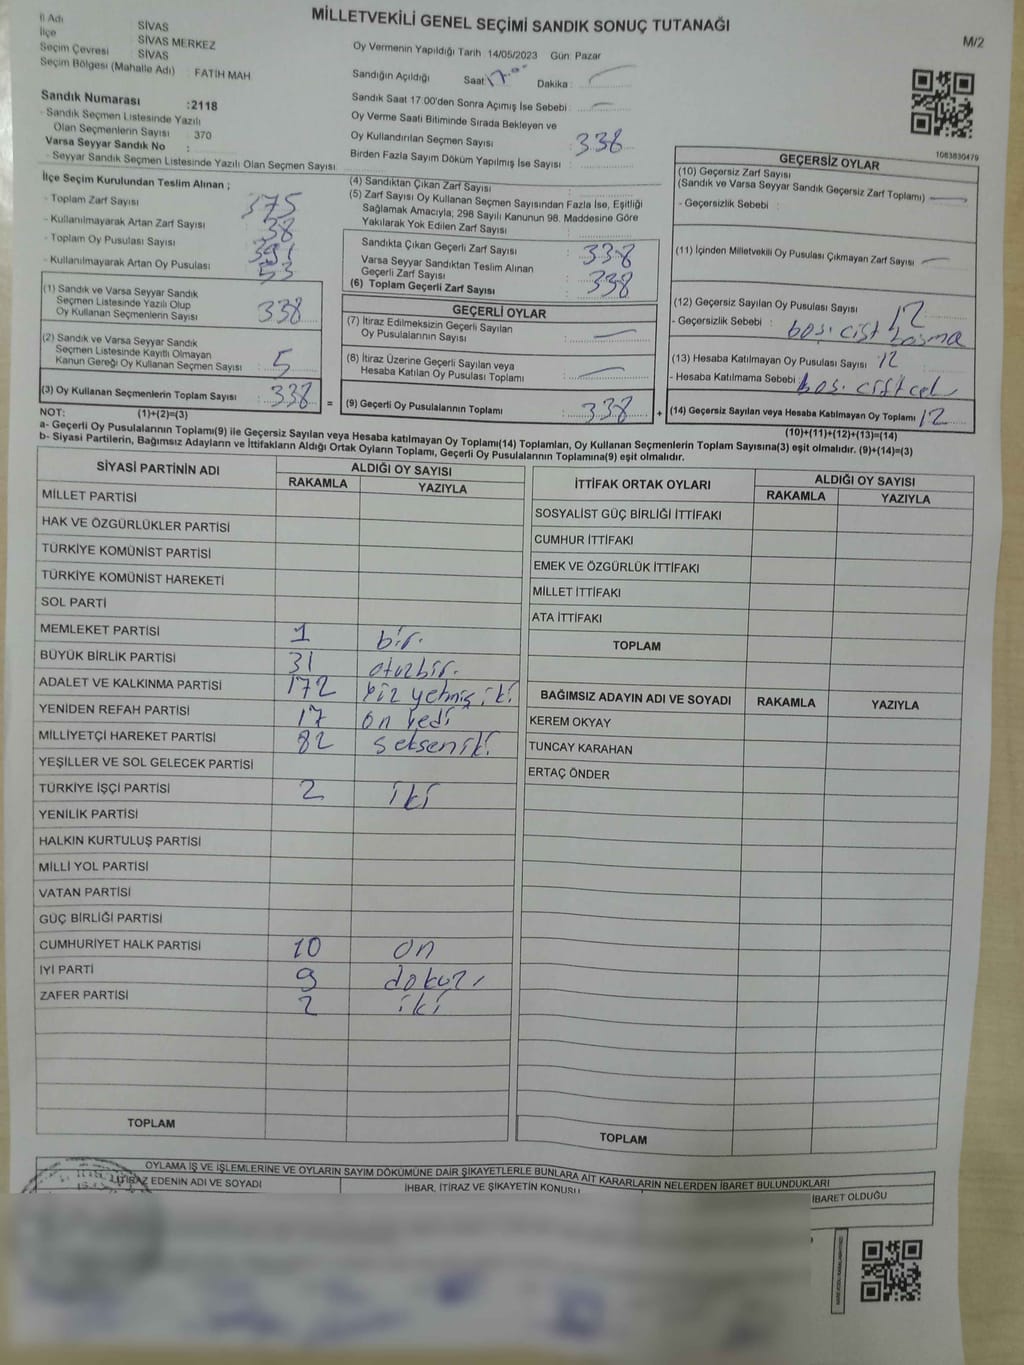 MİLLETVEKİLİ GENEL SEÇİMİ SANDIK SONUÇ TUTANAĞI
M/2
İl Adı SİVAS
İlçe SİVAS MERKEZ
Seçim Çevresi SİVAS
Seçim Bölgesi (Mahalle Adı) : FATİH MAH
Sandık Numarası :2118
- Sandık Seçmen Listesinde Yazılı
Olan Seçmenlerin Sayısı 370
Varsa Seyyar Sandık No :
- Seyyar Sandık Seçmen Listesinde Yazılı Olan Seçmen Sayısı
Oy Vermenin Yapıldığı Tarih 14/05/2023 Gün: Pazar
Sandığın Açıldığı Saat 17.00 Dakika :
Sandık Saat 17:00'den Sonra Açımış İse Sebebi :
Oy Verme Saati Bitiminde Sırada Bekleyen ve
Oy Kullandırılan Seçmen Sayısı : 338
Birden Fazla Sayım Döküm Yapılmış İse Sayısı :
İlçe Seçim Kurulundan Teslim Alınan ;
- Toplam Zarf Sayısı 375
- Kullanılmayarak Artan Zarf Sayısı 38
- Toplam Oy Pusulası Sayısı 391
- Kullanılmayarak Artan Oy Pusulası : 53
(1) Sandık ve Varsa Seyyar Sandık
Seçmen Listesinde Yazılı Olup
Oy Kullanan Seçmenlerin Sayısı : 338
(2) Sandık ve Varsa Seyyar Sandık
Seçmen Listesinde Kayıtlı Olmayan
Kanun Gereği Oy Kullanan Seçmen Sayısı : 5
(3) Oy Kullanan Seçmenlerin Toplam Sayısı : 338 =
(4) Sandıktan Çıkan Zarf Sayısı :
(5) Zarf Sayısı Oy Kullanan Seçmen Sayısından Fazla İse, Eşitliği
Sağlamak Amacıyla; 298 Sayılı Kanunun 98. Maddesine Göre
Yakılarak Yok Edilen Zarf Sayısı :
Sandıkta Çıkan Geçerli Zarf Sayısı : 338
Varsa Seyyar Sandıktan Teslim Alınan
Geçerli Zarf Sayısı :
(6) Toplam Geçerli Zarf Sayısı : 338
GEÇERLİ OYLAR
(7) İtiraz Edilmeksizin Geçerli Sayılan
Oy Pusulalarının Sayısı :
(8) İtiraz Üzerine Geçerli Sayılan veya
Hesaba Katılan Oy Pusulası Toplamı :
(9) Geçerli Oy Pusulalarının Toplamı : 338 +
1083830479
GEÇERSİZ OYLAR
(10) Geçersiz Zarf Sayısı
(Sandık ve Varsa Seyyar Sandık Geçersiz Zarf Toplamı)
- Geçersizlik Sebebi :
(11) İçinden Milletvekili Oy Pusulası Çıkmayan Zarf Sayısı
(12) Geçersiz Sayılan Oy Pusulası Sayısı : 12
- Geçersizlik Sebebi : boş. çift basma
(13) Hesaba Katılmayan Oy Pusulası Sayısı : 12
- Hesaba Katılmama Sebebi : boş. çift
(14) Geçersiz Sayılan veya Hesaba Katılmayan Oy Toplamı 12
NOT: (1)+(2)=(3) (10)+(11)+(12)+(13)=(14)
a- Geçerli Oy Pusulalarının Toplamı(9) ile Geçersiz Sayılan veya Hesaba katılmayan Oy Toplamı(14) Toplamları, Oy Kullanan Seçmenlerin Toplam Sayısına(3) eşit olmalıdır. (9)+(14)=(3)
b- Siyasi Partilerin, Bağımsız Adayların ve İttifakların Aldığı Ortak Oyların Toplamı, Geçerli Oy Pusulalarının Toplamına(9) eşit olmalıdır.
SİYASİ PARTİNİN ADI ALDIĞI OY SAYISI
RAKAMLA YAZIYLA
MİLLET PARTİSİ
HAK VE ÖZGÜRLÜKLER PARTİSİ
TÜRKİYE KOMÜNİST PARTİSİ
TÜRKİYE KOMÜNİST HAREKETİ
SOL PARTİ
MEMLEKET PARTİSİ 1 bir.
BÜYÜK BİRLİK PARTİSİ 31 otuzbir.
ADALET VE KALKINMA PARTİSİ 172 yüz yetmiş iki
YENİDEN REFAH PARTİSİ 17 on yedi
MİLLİYETÇİ HAREKET PARTİSİ 82 seksen iki.
YEŞİLLER VE SOL GELECEK PARTİSİ
TÜRKİYE İŞÇİ PARTİSİ 2 iki
YENİLİK PARTİSİ
HALKIN KURTULUŞ PARTİSİ
MİLLİ YOL PARTİSİ
VATAN PARTİSİ
GÜÇ BİRLİĞİ PARTİSİ
CUMHURİYET HALK PARTİSİ 10 on
İYİ PARTİ 9 dokuz
ZAFER PARTİSİ 2 iki
TOPLAM
İTTİFAK ORTAK OYLARI ALDIĞI OY SAYISI
RAKAMLA YAZIYLA
SOSYALİST GÜÇ BİRLİĞİ İTTİFAKI
CUMHUR İTTİFAKI
EMEK VE ÖZGÜRLÜK İTTİFAKI
MİLLET İTTİFAKI
ATA İTTİFAKI
TOPLAM
BAĞIMSIZ ADAYIN ADI VE SOYADI RAKAMLA YAZIYLA
KEREM OKYAY
TUNCAY KARAHAN
ERTAÇ ÖNDER
TOPLAM
OYLAMA İŞ VE İŞLEMLERİNE VE OYLARIN SAYIM DÖKÜMÜNE DAİR ŞİKAYETLERLE BUNLARA AİT KARARLARIN NELERDEN İBARET BULUNDUKLARI
İTİRAZ EDENİN ADI VE SOYADI İHBAR, İTİRAZ VE ŞİKAYETİN KONUSU İBARET OLDUĞU